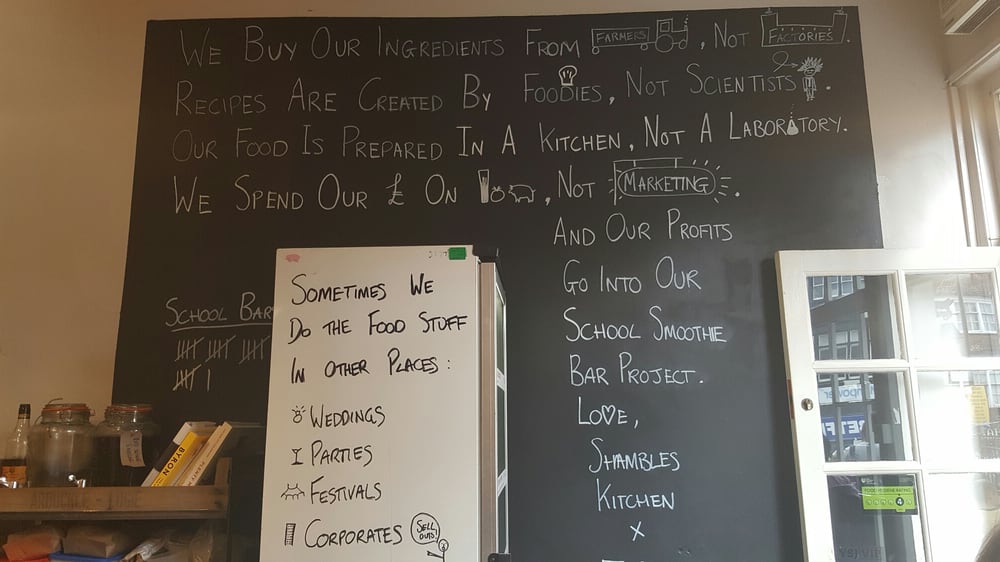 We Buy Our Ingredients From FARMERS, Not FACTORIES.
Recipes Are Created By Foodies, Not Scientists.
Our Food Is Prepared In A Kitchen, Not A Laboratory.
We Spend Our £ On , Not MARKETING.
And Our Profits
Go Into Our
School Smoothie
Bar Project.
Love,
Shambles
Kitchen
x
School Bar
Sometimes We
Do the Food Stuff
In Other Places:
Weddings
Parties
Festivals
Corporates
SELL
OUTS!
BYRON
FOOD HYGIENE RATING
4